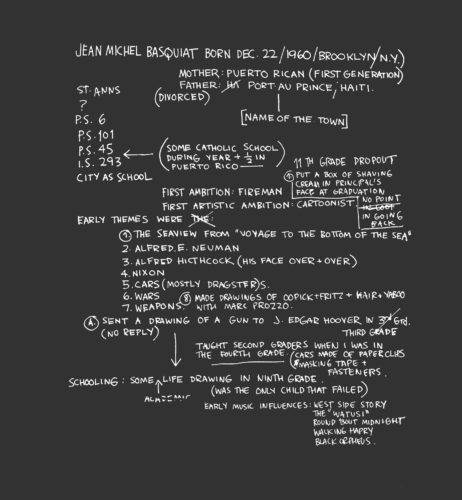 JEAN MICHEL BASQUIAT BORN DEC. 22/1960/BROOKLYN/N.Y.)
MOTHER: PUERTO RICAN (FIRST GENERATION)
FATHER: PORT-AU PRINCE, HAITI.
(DIVORCED)
[NAME OF THE TOWN]
ST. ANNS
?
P.S. 6
P.S. 101
P.S. 45
I.S. 293
CITY AS SCHOOL
(SOME CATHOLIC SCHOOL
DURING YEAR + 1/2 IN
PUERTO RICO
11TH GRADE DROPOUT
① PUT A BOX OF SHAVING
CREAM IN PRINCIPAL'S
FACE AT GRADUATION
NO POINT
IN GOING
BACK
FIRST AMBITION: FIREMAN
FIRST ARTISTIC AMBITION: CARTOONIST
EARLY THEMES WERE THE:
① THE SEAVIEW FROM "VOYAGE TO THE BOTTOM OF THE SEA"
2. ALFRED. E. NEUMAN
3. ALFRED HICTHCOCK (HIS FACE OVER + OVER)
4. NIXON
5. CARS (MOSTLY DRAGSTER)S.
6. WARS
7. WEAPONS
⑧ MADE DRAWINGS OF GOPICK + FRITZ + HAIR + YABOO
WITH MARC PROZZO.
SENT A DRAWING OF A GUN TO J. EDGAR HOOVER IN 3RD Grd.
(NO REPLY)
THIRD GRADE
TAUGHT SECOND GRADERS WHEN I WAS IN
THE FOURTH GRADE.
(CARS MADE OF PAPER CLIPS
MASKING TAPE +
FASTENERS.
SCHOOLING: SOME LIFE DRAWING IN NINTH GRADE.
ACADEMIC
(WAS THE ONLY CHILD THAT FAILED)
EARLY MUSIC INFLUENCES: WEST SIDE STORY
THE "WATUSI"
ROUND 'BOUT MIDNIGHT
WALKING HARRY
BLACK ORPHEUS.